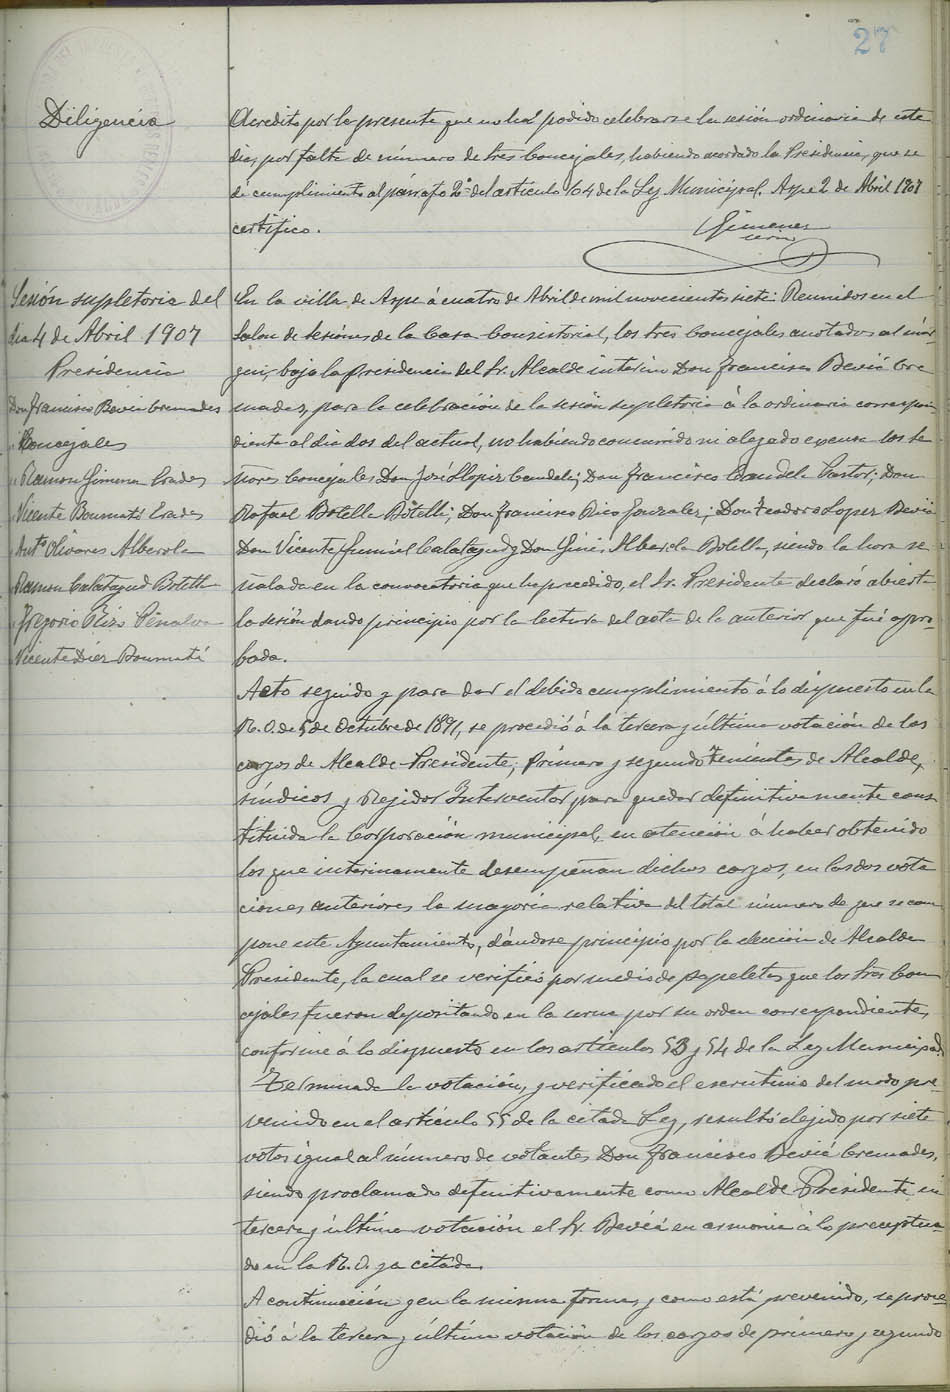 27
Diligencia
Acredito por la presente que no há podido celebrarse la sesión ordinaria de este
dia, por falta de número de Sres Concejales, habiendo acordado la Presidencia, que se
dé cumplimiento al párrafo 2º del artículo 104 de la Ley Municipal. Aspe 2 de Abril 1907
certifico.
Gimenez
Sesión supletoria del
dia 4 de Abril 1907
Presidencia
Don Francisco Bevia Cremades
Concejales
" Ramon Gimenez Prades
" Vicente Boumati Prades
" Antº Olivares Alberola
" Ramon Calatayud Botella
" Gregorio Rizo Peñalva
" Vicente Diez Boumatí
En la villa de Aspe á cuatro de Abril de mil novecientos siete: Reunidos en el
Salon de sesiones de la Casa Consistorial, los Sres Concejales anotados al már-
gen, bajo la Presidencia del Sr. Alcalde interino Don Francisco Beviá Cre
mades, para la celebración de la sesión supletoria á la ordinaria correspon
diente al dia dos del actual, no habiendo concurrido ni alegado excusa los Se
ñores Concejales Don José Llopiz Candela; Don Francisco Candela Pastor; Don
Rafael Botella Botella; Don Francisco Rico Gonzalez; Don Teodoro Lopez Beviá
Don Vicente Gumiel Calatayud y Don Ginés Alberola Botella, siendo la hora se
ñalada en la convocatoria que ha precedido, el Sr. Presidente declaró abierta
la sesión dando principio por la lectura del acta de la anterior que fué apro-
bada.
Acto seguido y para dar el debido cumplimiento á lo dispuesto en la
R. O. de 5 de Octubre de 1891, se procedió á la tercera y última votación de los
cargos de Alcalde Presidente; primero y segundo Tenientes de Alcalde,
síndicos y Rejidor Interventor, para quedar definitivamente cons
tituida la Corporación municipal, en atención á haber obtenido
los que interinamente desempeñan dichos cargos, en las dos vota
ciones anteriores la mayoria relativa del total número de que se com
pone este Ayuntamiento, dándose principio por la elección de Alcalde
Presidente, la cual se verificó por medio de papeletas que los Sres Con
cejales fueron depositando en la urna por su orden correspondiente,
conforme á lo dispuesto en los artículos 53 y 54 de la Ley Municipal.
Terminada la votación, y verificado el escrutinio del modo pre-
venido en el artículo 55 de la citada Ley, resultó elejido por siete
votos igual al número de votantes Don Francisco Beviá Cremades,
siendo proclamado definitivamente como Alcalde Presidente en
tercera y última votación el Sr. Beviá en armonia á lo preceptua-
do en la R. O. ya citada.
A continuación y en la misma forma, y como está prevenido, se proce-
dió á la tercera y última votación de los cargos de primero y segundo